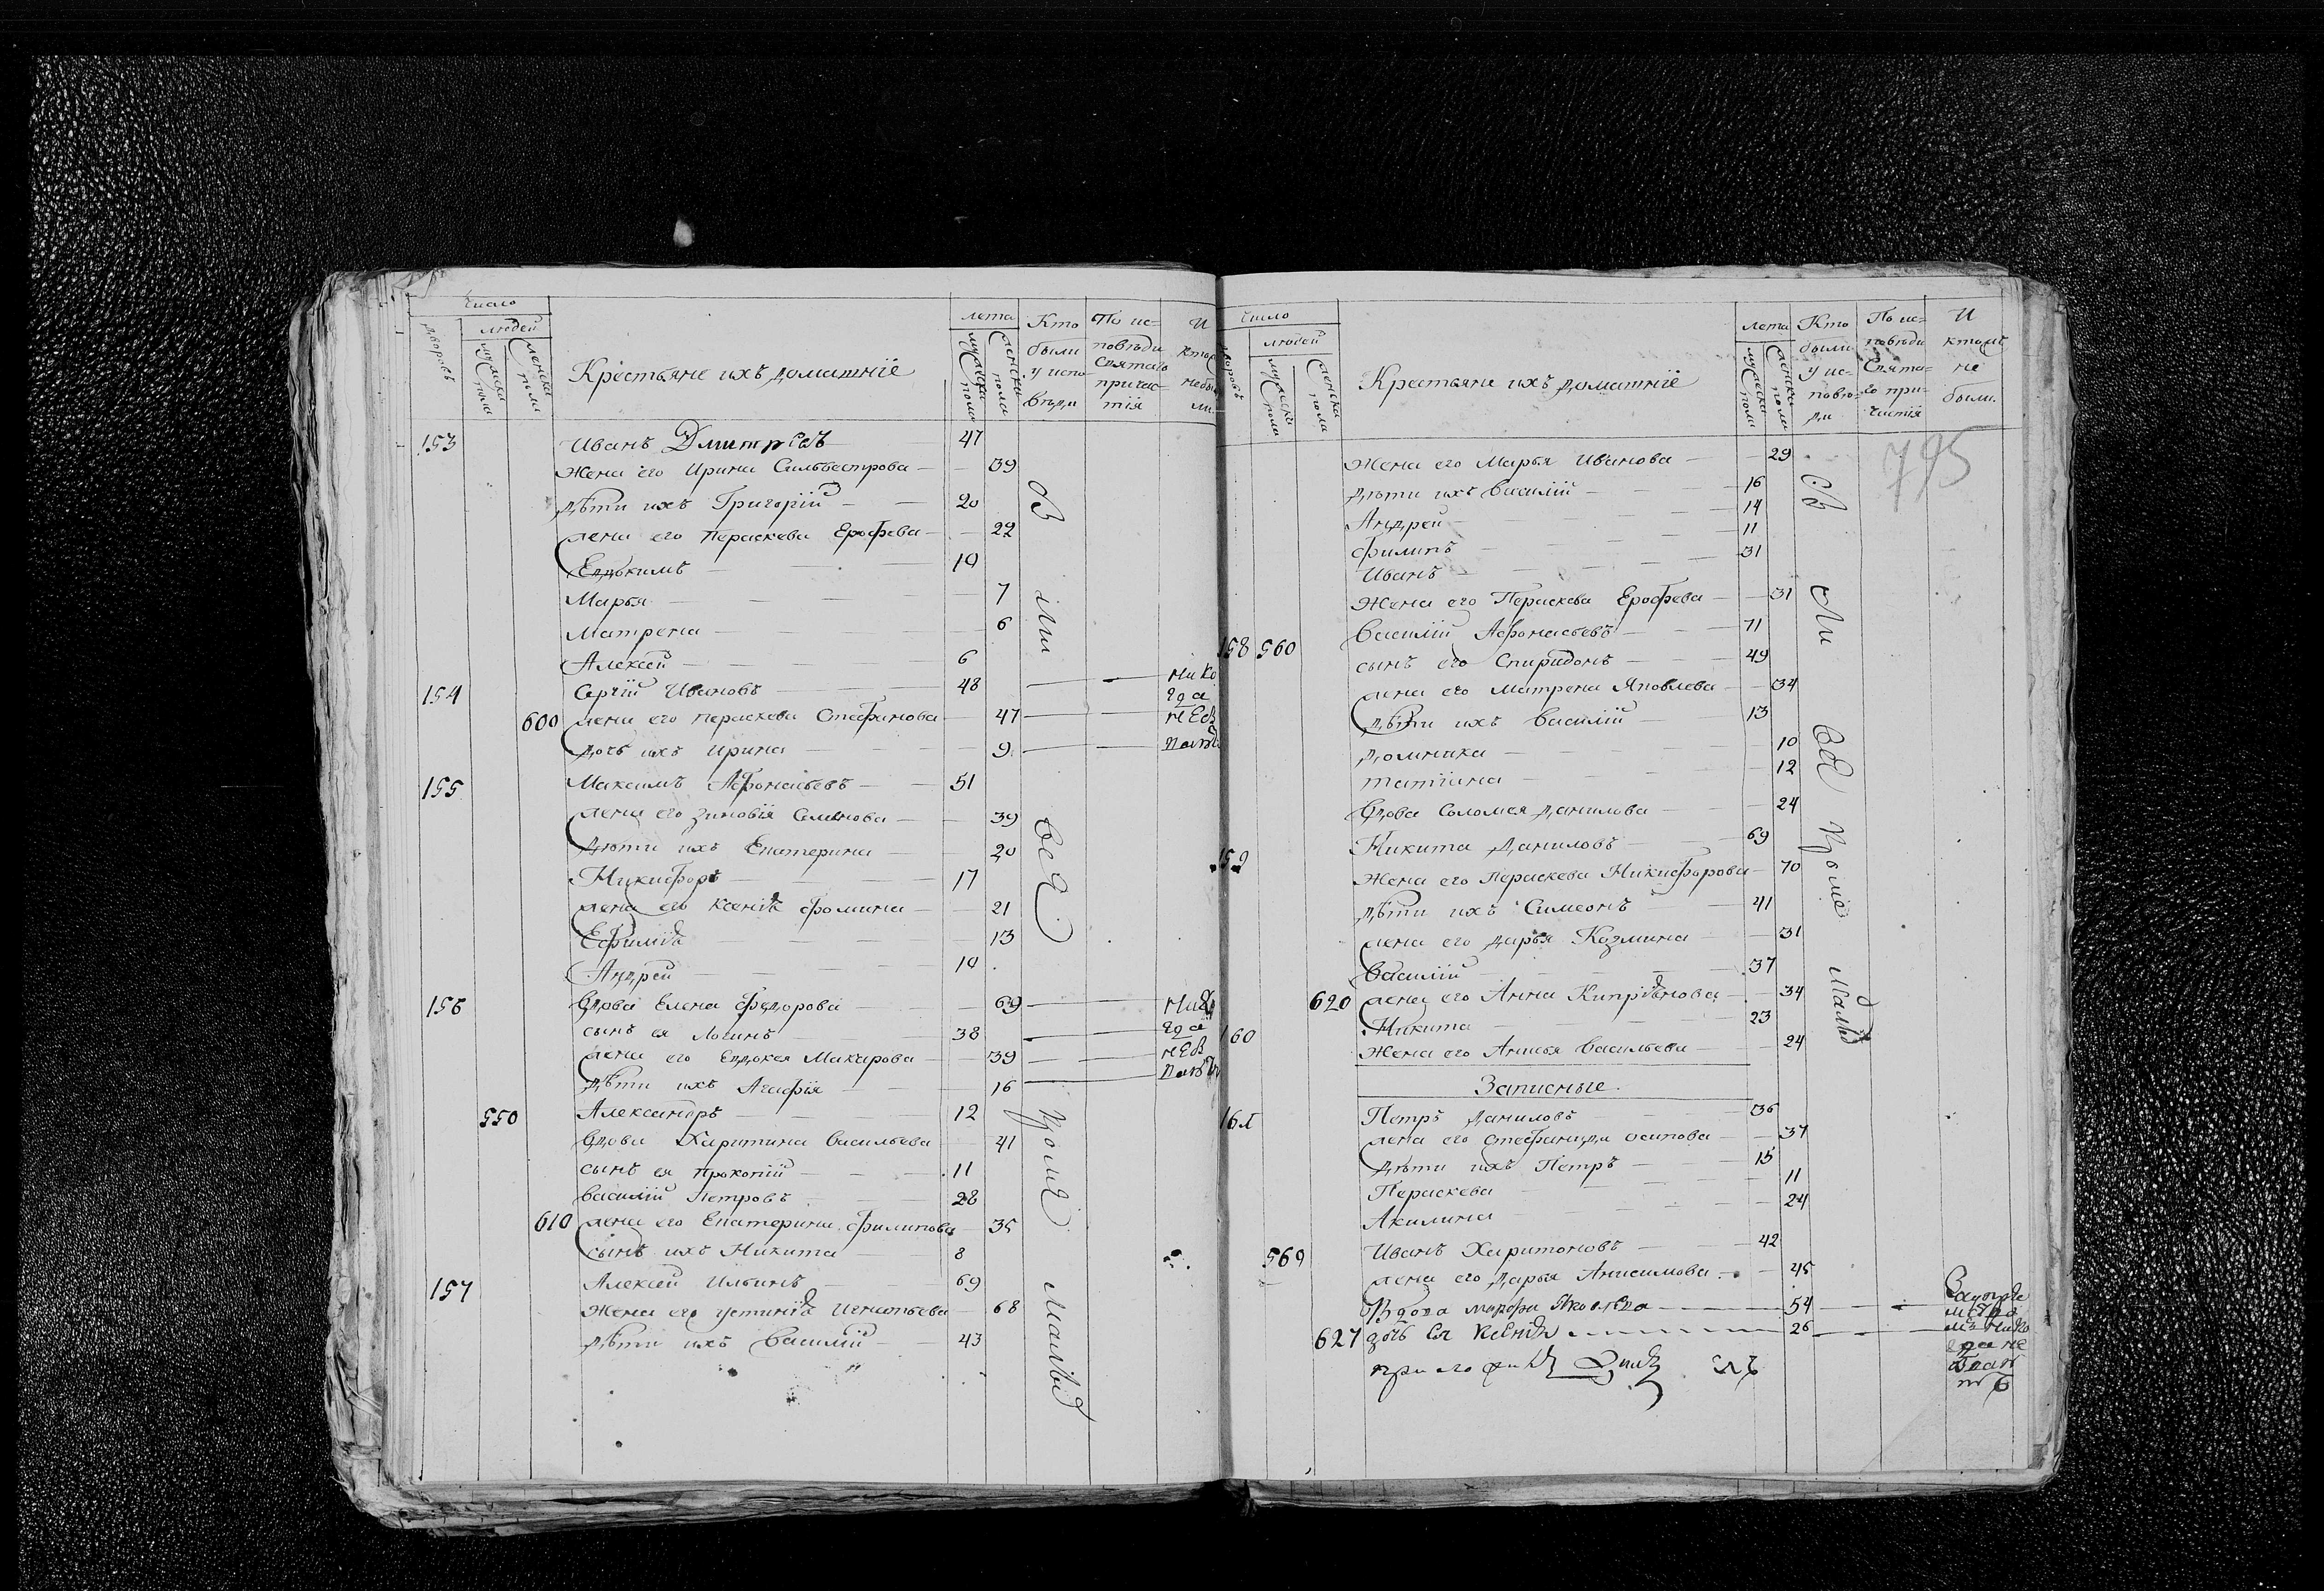 число
людей
дворовъ
мужеска пола
женска пола
Крестьяне ихъ домашнiе
лета
мужеска пола
женска пола
Кто были у испо вѣди
По ис= повѣди Святаго причас= тiя
И
153 Иванъ Дмитрiевъ 47
Жена его Ирина Сильвестрова 39
Дѣти ихъ Григорiй 20
жена его Пераскева Ерофѣева 22
Евдокимъ 10
Марья 7
Матрена 6
Алексѣй 6
154 Сергiй Ивановъ 48
600 жена его Пераскева Стефанова 47
Дочь ихъ Ирина 9
155 Максимъ Афонасьевъ 51
жена его Зиновiя Семенова 39
Дѣти ихъ Екатерина 20
Никифоръ 17
жена его Ксенiѧ Фомина 21
Ефимiѧ 13
Андрей 10
156 Вдова Елена Федорова 69
сынъ ея Логинъ 38
жена его Евдокея Макарова 39
Дѣти ихъ Агафiя 16
550 Александръ 12
Вдова Харитина Васильева 41
сынъ ея Прокопiй 11
Василiй Петровъ 28
610 жена его Екатерина Филипова 35
сынъ ихъ Никита 8
157 Алексѣй Ильинъ 69
Жена его Устинiѧ Игнатьева 68
Дѣти ихъ Василiй 43
Всѣ кромѣ малыхъ
число
людей
дворовъ
мужеска пола
женска пола
Крестьяне ихъ домашнiе
лета
мужеска пола
женска пола
Кто были у ис= повѣ= ди
По ис= повѣди Свята= го при= частiя
И
не были.
795
Жена его Марья Иванова 29
Дѣти ихъ Василiй 16
Андрей 14
Филипъ 11
Иванъ 31
Жена его Пераскева Ерофѣева 31
158 560 Василiй Афонасьевъ 71
сынъ его Спиридонъ 49
жена его Матрена Яковлева 34
Дѣти ихъ Василiй 13
Домника 10
Татiана 12
Вдова Соломея Данилова 24
159 Никита Даниловъ 69
Жена его Пераскева Никифорова 70
Дѣти ихъ Симеонъ 41
жена его Дарья Козмина 31
Василiй 37
620 жена его Анна Кипрiѧнова 34
Никита 23
160 Жена его Анисья Васильева 24
Записные.
161 Петръ Даниловъ 36
жена его Стефанида Осипова 37
Дѣти ихъ Петръ 15
Пераскева 11
Акилина 24
569 Иванъ Харитоновъ 42
жена его Дарья Анисимова 45
Вдова Марфа Яковлева 54
627 дочь ея Ксенiѧ 26